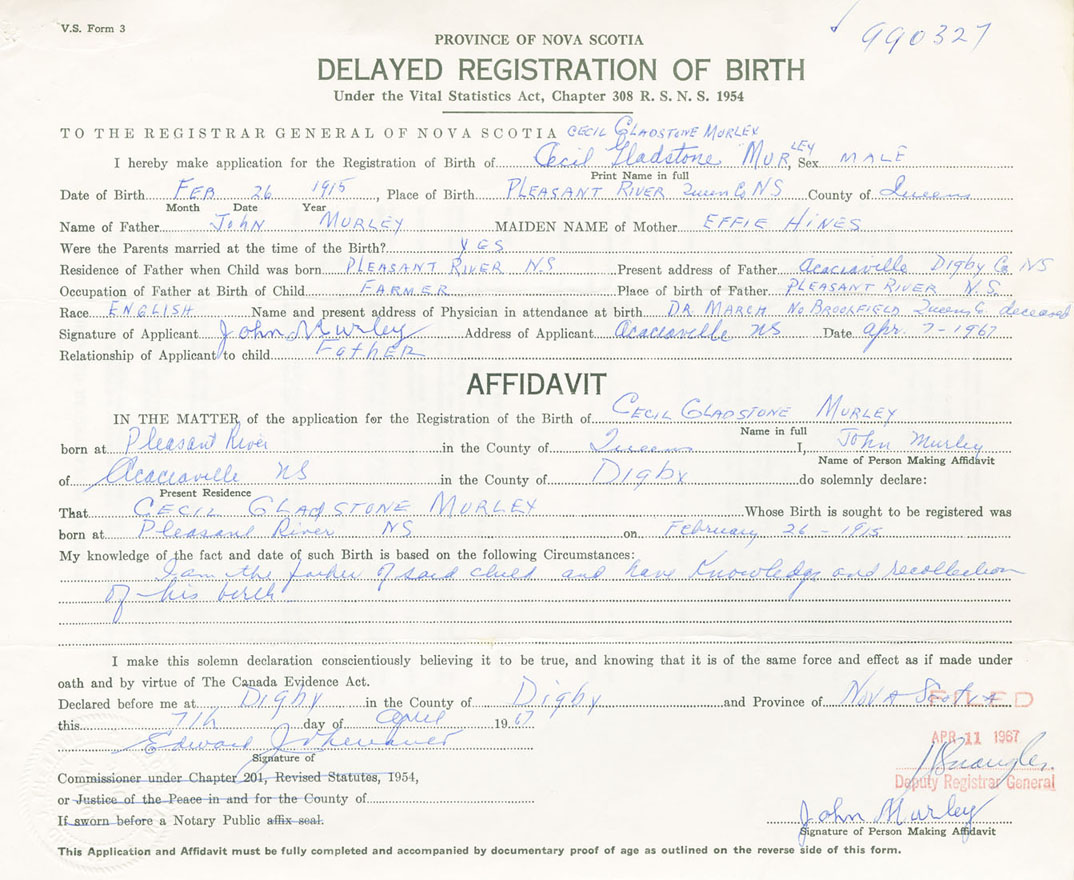 V.S. Form 3
990327
PROVINCE OF NOVA SCOTIA
DELAYED REGISTRATION OF BIRTH
Under the Vital Statistics Act, Chapter 308 R. S. N. S. 1954
TO THE REGISTRAR GENERAL OF NOVA SCOTIA CECIL GLADSTONE MURLEY
I hereby make application for the Registration of Birth of Cecil Gladstone MURLEY, Sex MALE
Print Name in full
Date of Birth FEB 26 1915, Place of Birth PLEASANT RIVER Queen Co NS County of Queens
Month Date Year
Name of Father JOHN MURLEY MAIDEN NAME of Mother EFFIE HINES
Were the Parents married at the time of the Birth? YES
Residence of Father when Child was born PLEASANT RIVER N.S Present address of Father Acaciaville Digby Co NS
Occupation of Father at Birth of Child FARMER Place of birth of Father PLEASANT RIVER N.S.
Race ENGLISH Name and present address of Physician in attendance at birth DR MARCH No BROOKFIELD Queens Co. deceased
Signature of Applicant John Murley Address of Applicant Acaciaville NS Date Apr. 7-1967
Relationship of Applicant to child Father
AFFIDAVIT
IN THE MATTER of the application for the Registration of the Birth of CECIL GLADSTONE MURLEY
Name in full
born at Pleasant River in the County of Queens I, John Murley
Name of Person Making Affidavit
of Acaciaville NS in the County of DIGBY do solemnly declare:
Present Residence
That CECIL GLADSTONE MURLEY Whose Birth is sought to be registered was
born at Pleasant River NS on February 26 - 1915
My knowledge of the fact and date of such Birth is based on the following Circumstances:
I am the father of said child and have Knowledge and recollection
of his birth
I make this solemn declaration conscientiously believing it to be true, and knowing that it is of the same force and effect as if made under
oath and by virtue of The Canada Evidence Act.
Declared before me at Digby in the County of Digby and Province of NOVA Scotia
FILED
this 7th day of April 1967
APR 11 1967
Edward
Signature of
Commissioner under Chapter 201, Revised Statutes, 1954,
Deputy Registrar General
or Justice of the Peace in and for the County of
If sworn before a Notary Public affix seal.
John Murley
Signature of Person Making Affidavit
This Application and Affidavit must be fully completed and accompanied by documentary proof of age as outlined on the reverse side of this form.